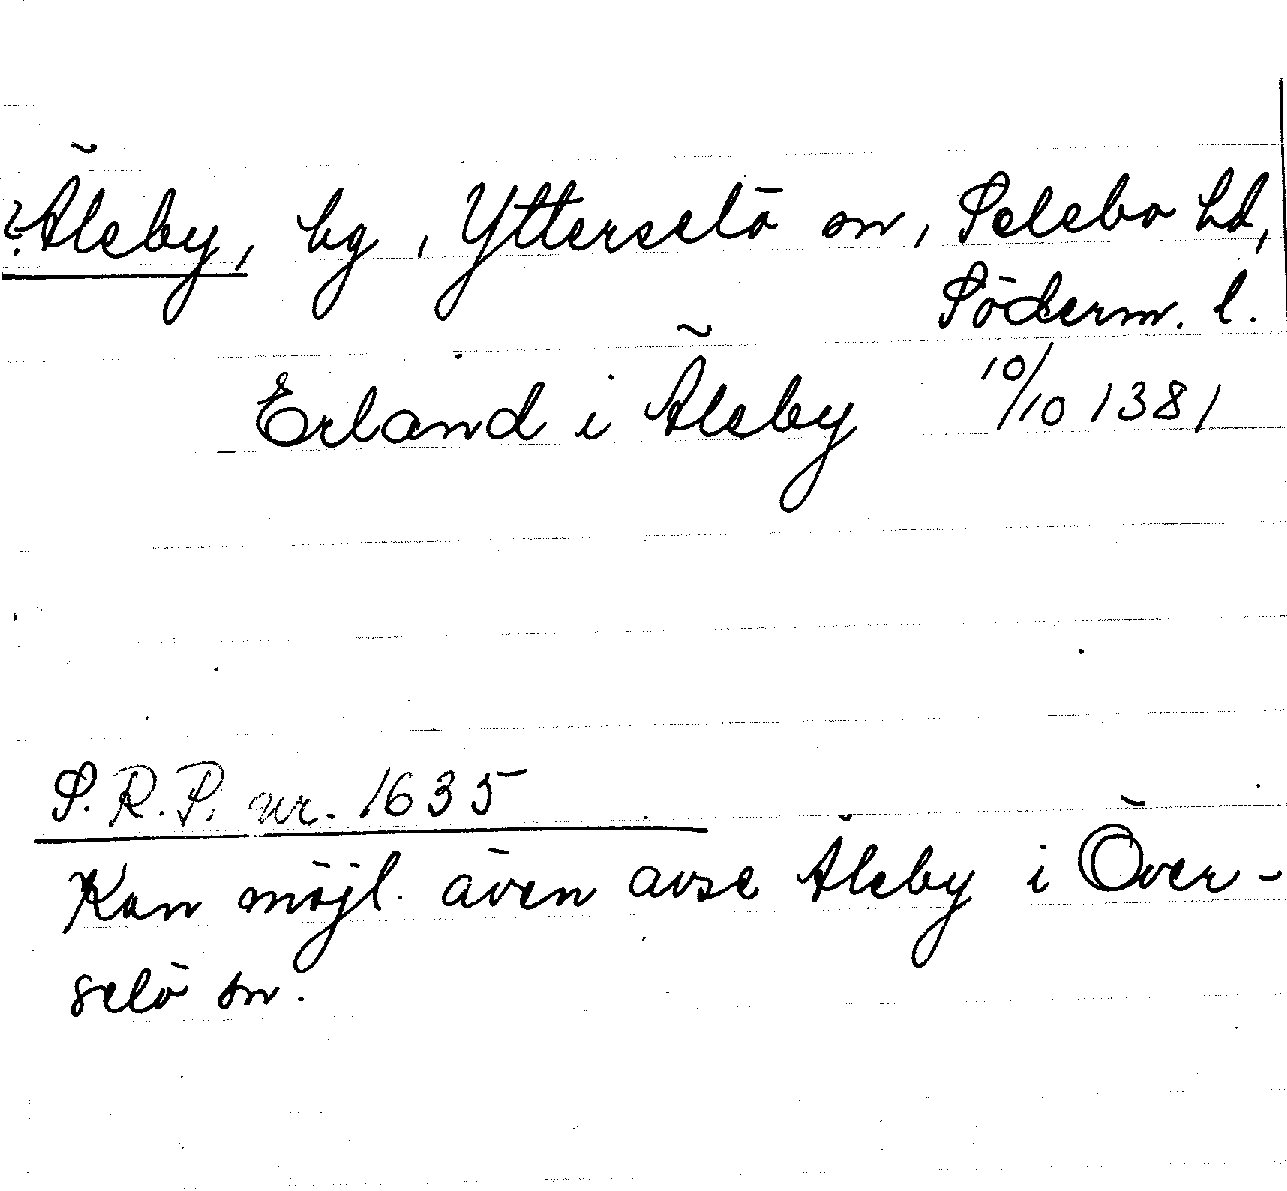 ?Äleby, by, Ytterselö sn, Selebo hd,
Söderm. l.
Erland i Äleby 10/10 1381
S.R.P. nr. 1635
Kan möjl. även avse Äleby i Över-
selö sn.